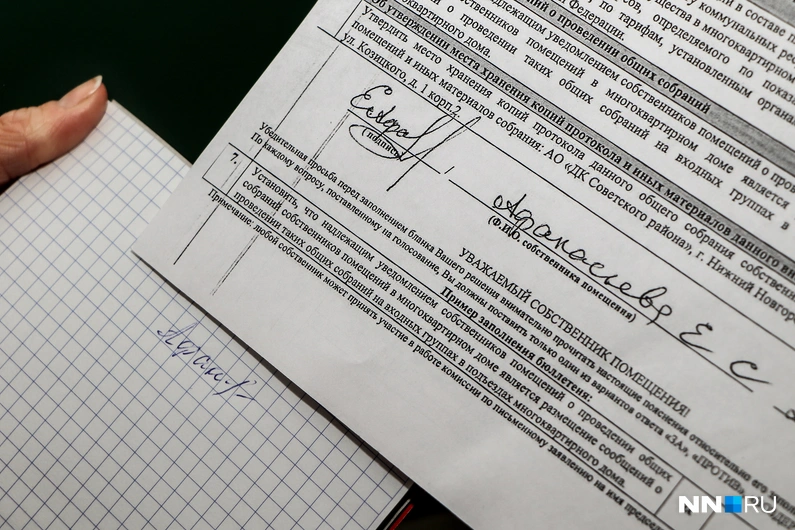 в составе п
коммунальных рес
ества в многоквартирном
по тарифам, установленным
определяемого по показа
Федерации.
надлежащим уведомлением собственников помещений о пров
о проведении таких общих собраний на входных группах в
многоквартирного дома.
Об утверждении места хранения копий протокола и иных материалов данного
Утвердить место хранения копий протокола данного общего собрания собственн
помещений и иных материалов собрания: АО «ДК Советского района», г. Нижний Новгоро
ул. Козицкого, д. 1 корп.2.
(подпись)
Афанасьева Е С
(Ф.И.О. собственника помещения)
УВАЖАЕМЫЙ СОБСТВЕННИК ПОМЕЩЕНИЯ!
Убедительная просьба перед заполнением бланка Вашего решения внимательно прочитать настоящие пояснения относительно его
По каждому вопросу, поставленному на голосование, Вы должны поставить только один из вариантов ответа «ЗА», «ПРОТИВ»
Пример заполнения бюллетеня:
7.
Установить, что надлежащим уведомлением собственников помещений о проведении общих
собраний собственников помещений в многоквартирном доме является размещение сообщений о
проведении таких общих собраний на входных группах в подъездах многоквартирного дома.
Примечание: любой собственник может принять участие в работе комиссии по письменному заявлению на имя предсе
NN RU